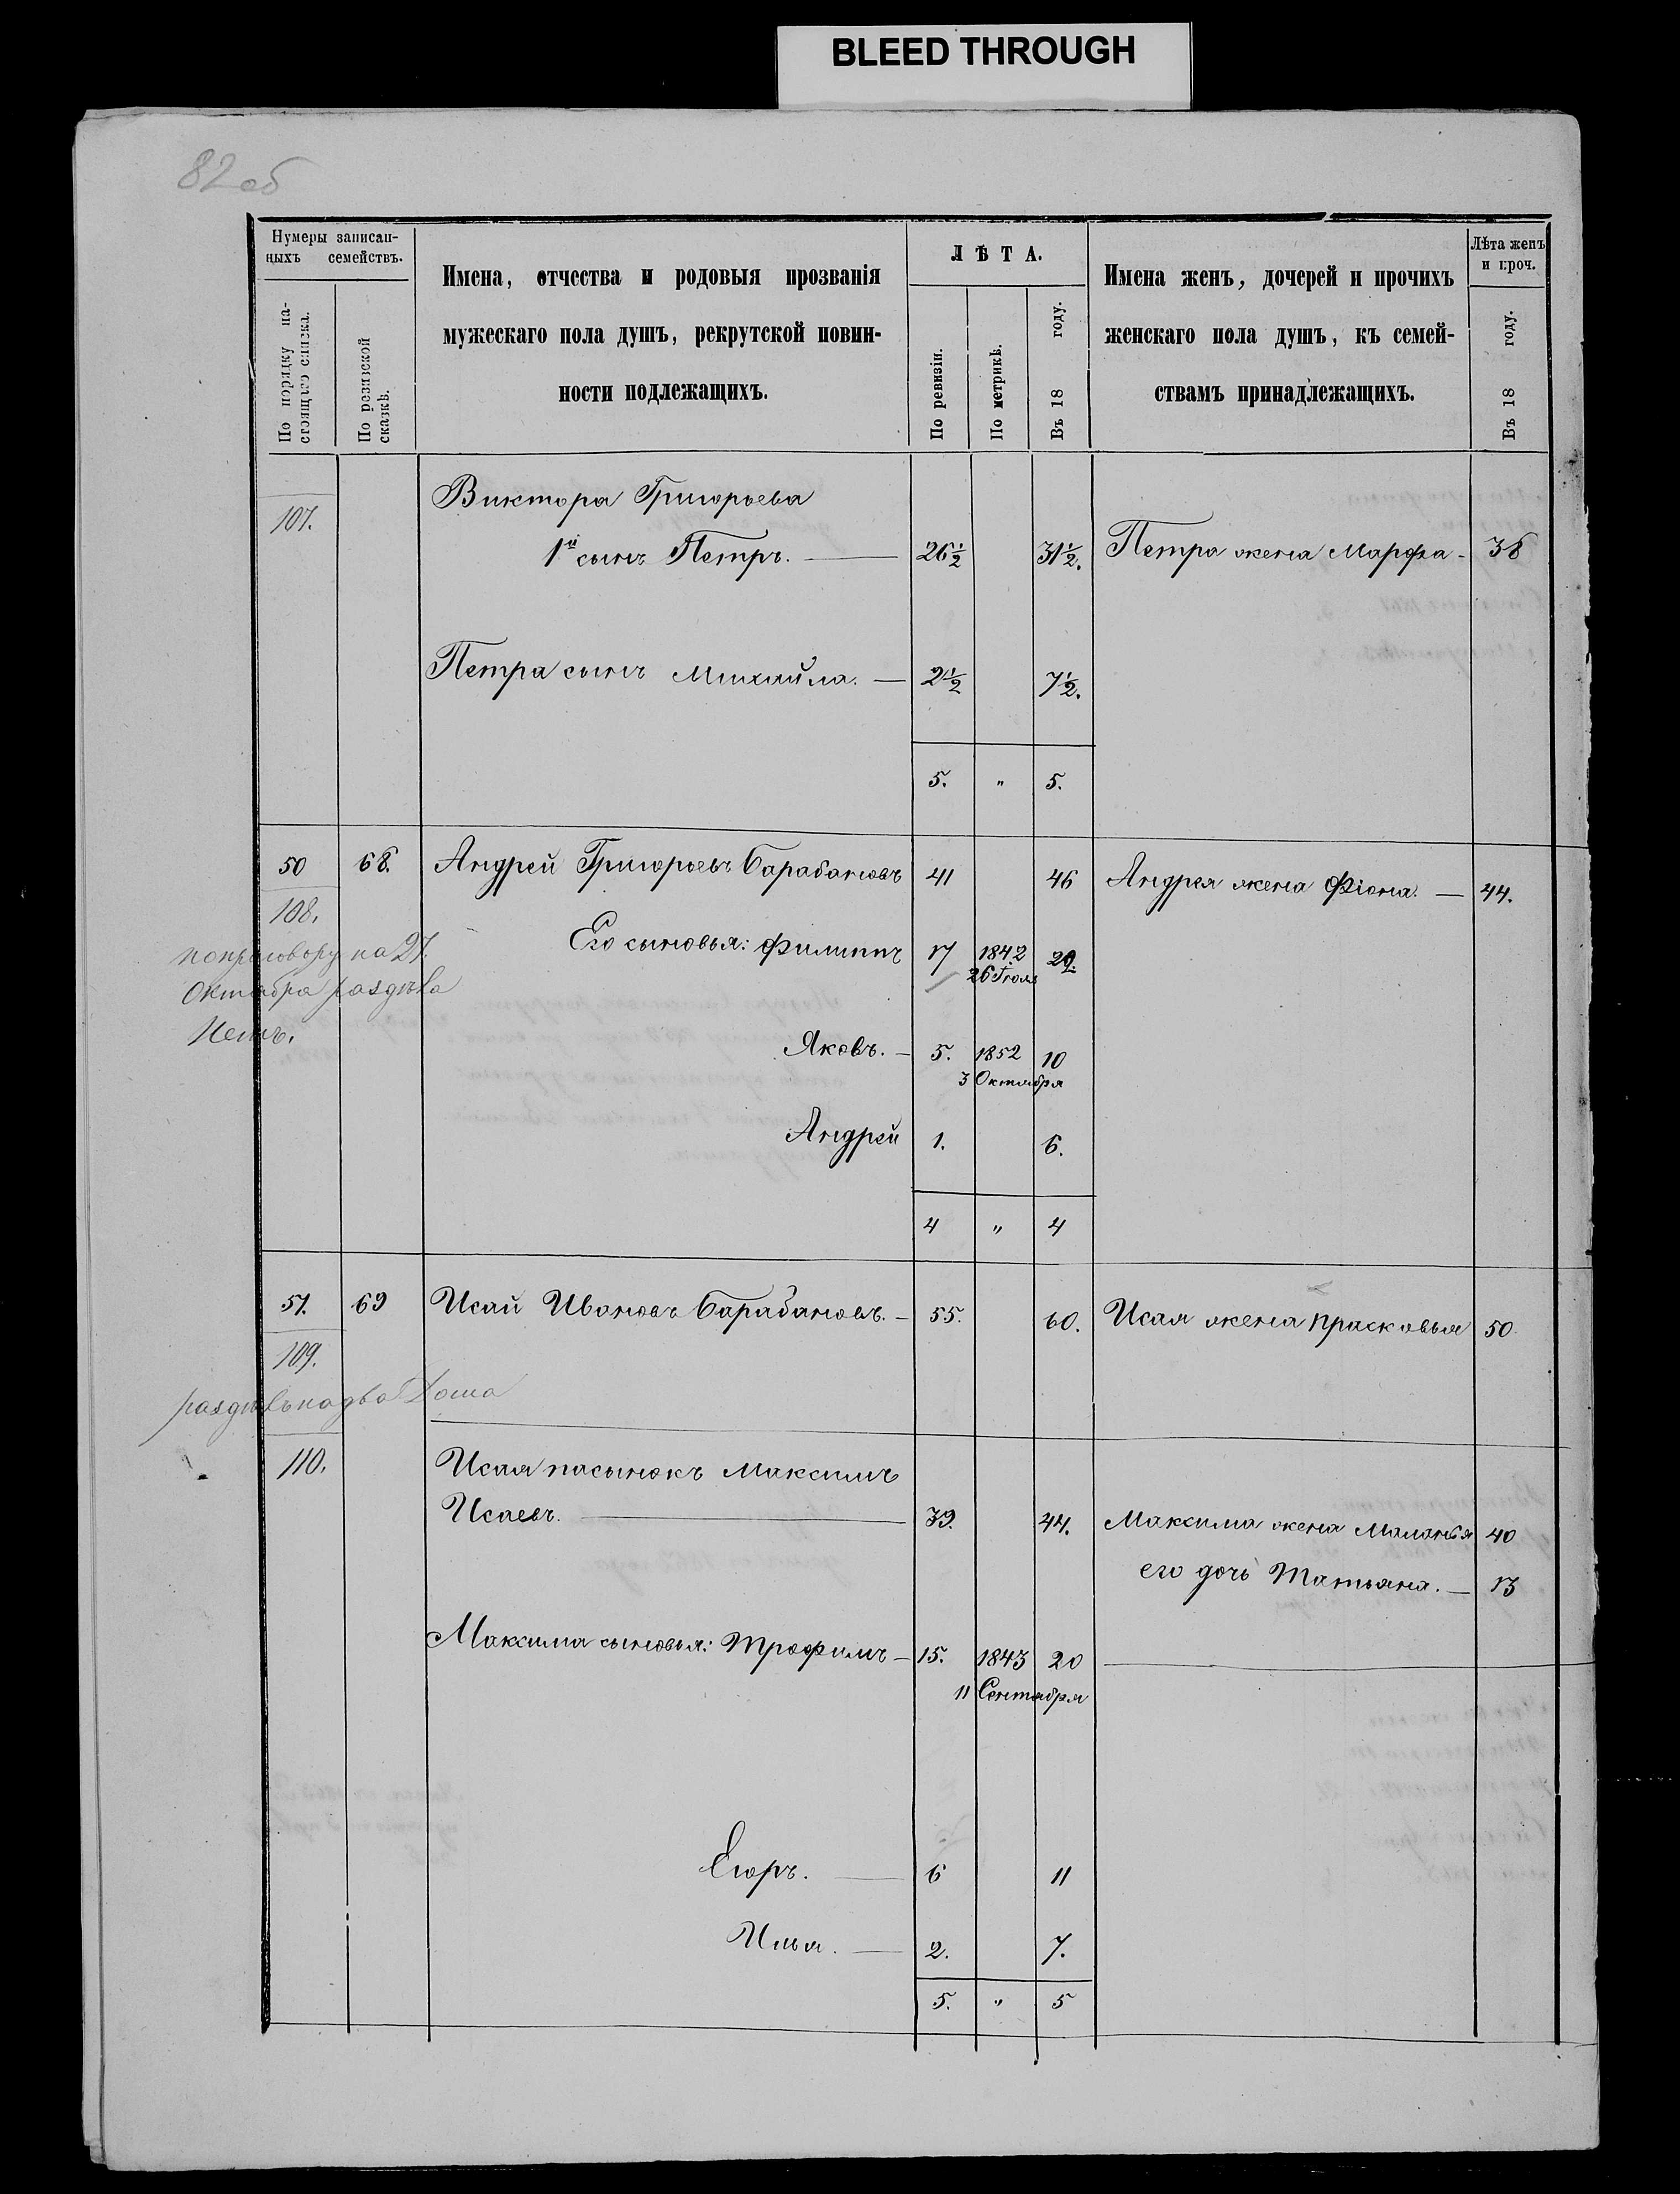 BLEED THROUGH
82 об
Нумеры записан-
ныхъ семействъ.
По порядку на-
стоящаго списка.
По ревизской
сказкѣ.
Имена, отчества и родовыя прозванія
мужескаго пола душъ, рекрутской повин-
ности подлежащихъ.
ЛѢТА.
По ревизіи.
По метрикѣ.
Въ 18 году.
Имена женъ, дочерей и прочихъ
женскаго пола душъ, къ семей-
ствамъ принадлежащихъ.
Лѣта женъ
и проч.
Въ 18 году.
107. Виктора Григорьева
1й сынъ Петръ. — 26½ 31½. Петра жена Марфа - 38
Петра сынъ Михайла. — 2½ 7½.
5. " 5.
50 68. Андрей Григорьевъ Барабановъ 41 46 Андрея жена Фіона. — 44.
108.
по приговору на 27.
Октября раздѣла
Нетъ.
Его сыновья: Филиппъ 17 1842 20.
26 Іюля
Яковъ. - 5. 1852 10
3 Октября
Андрей 1. 6.
4 " 4
51. 69 Исай Ивановъ Барабановъ. - 55. 60. Исая жена Прасковья 50
109.
раздѣлъ на два Дома
110. Исая пасынокъ Максимъ
Исаевъ. — 39. 44. Максима жена Маланья 40
его дочь Татьяна. — 13
Максима сыновья: Трофимъ - 15. 1843 20
11 Сентября
Егоръ. — 6 11
Илья. — 2. 7.
5. " 5